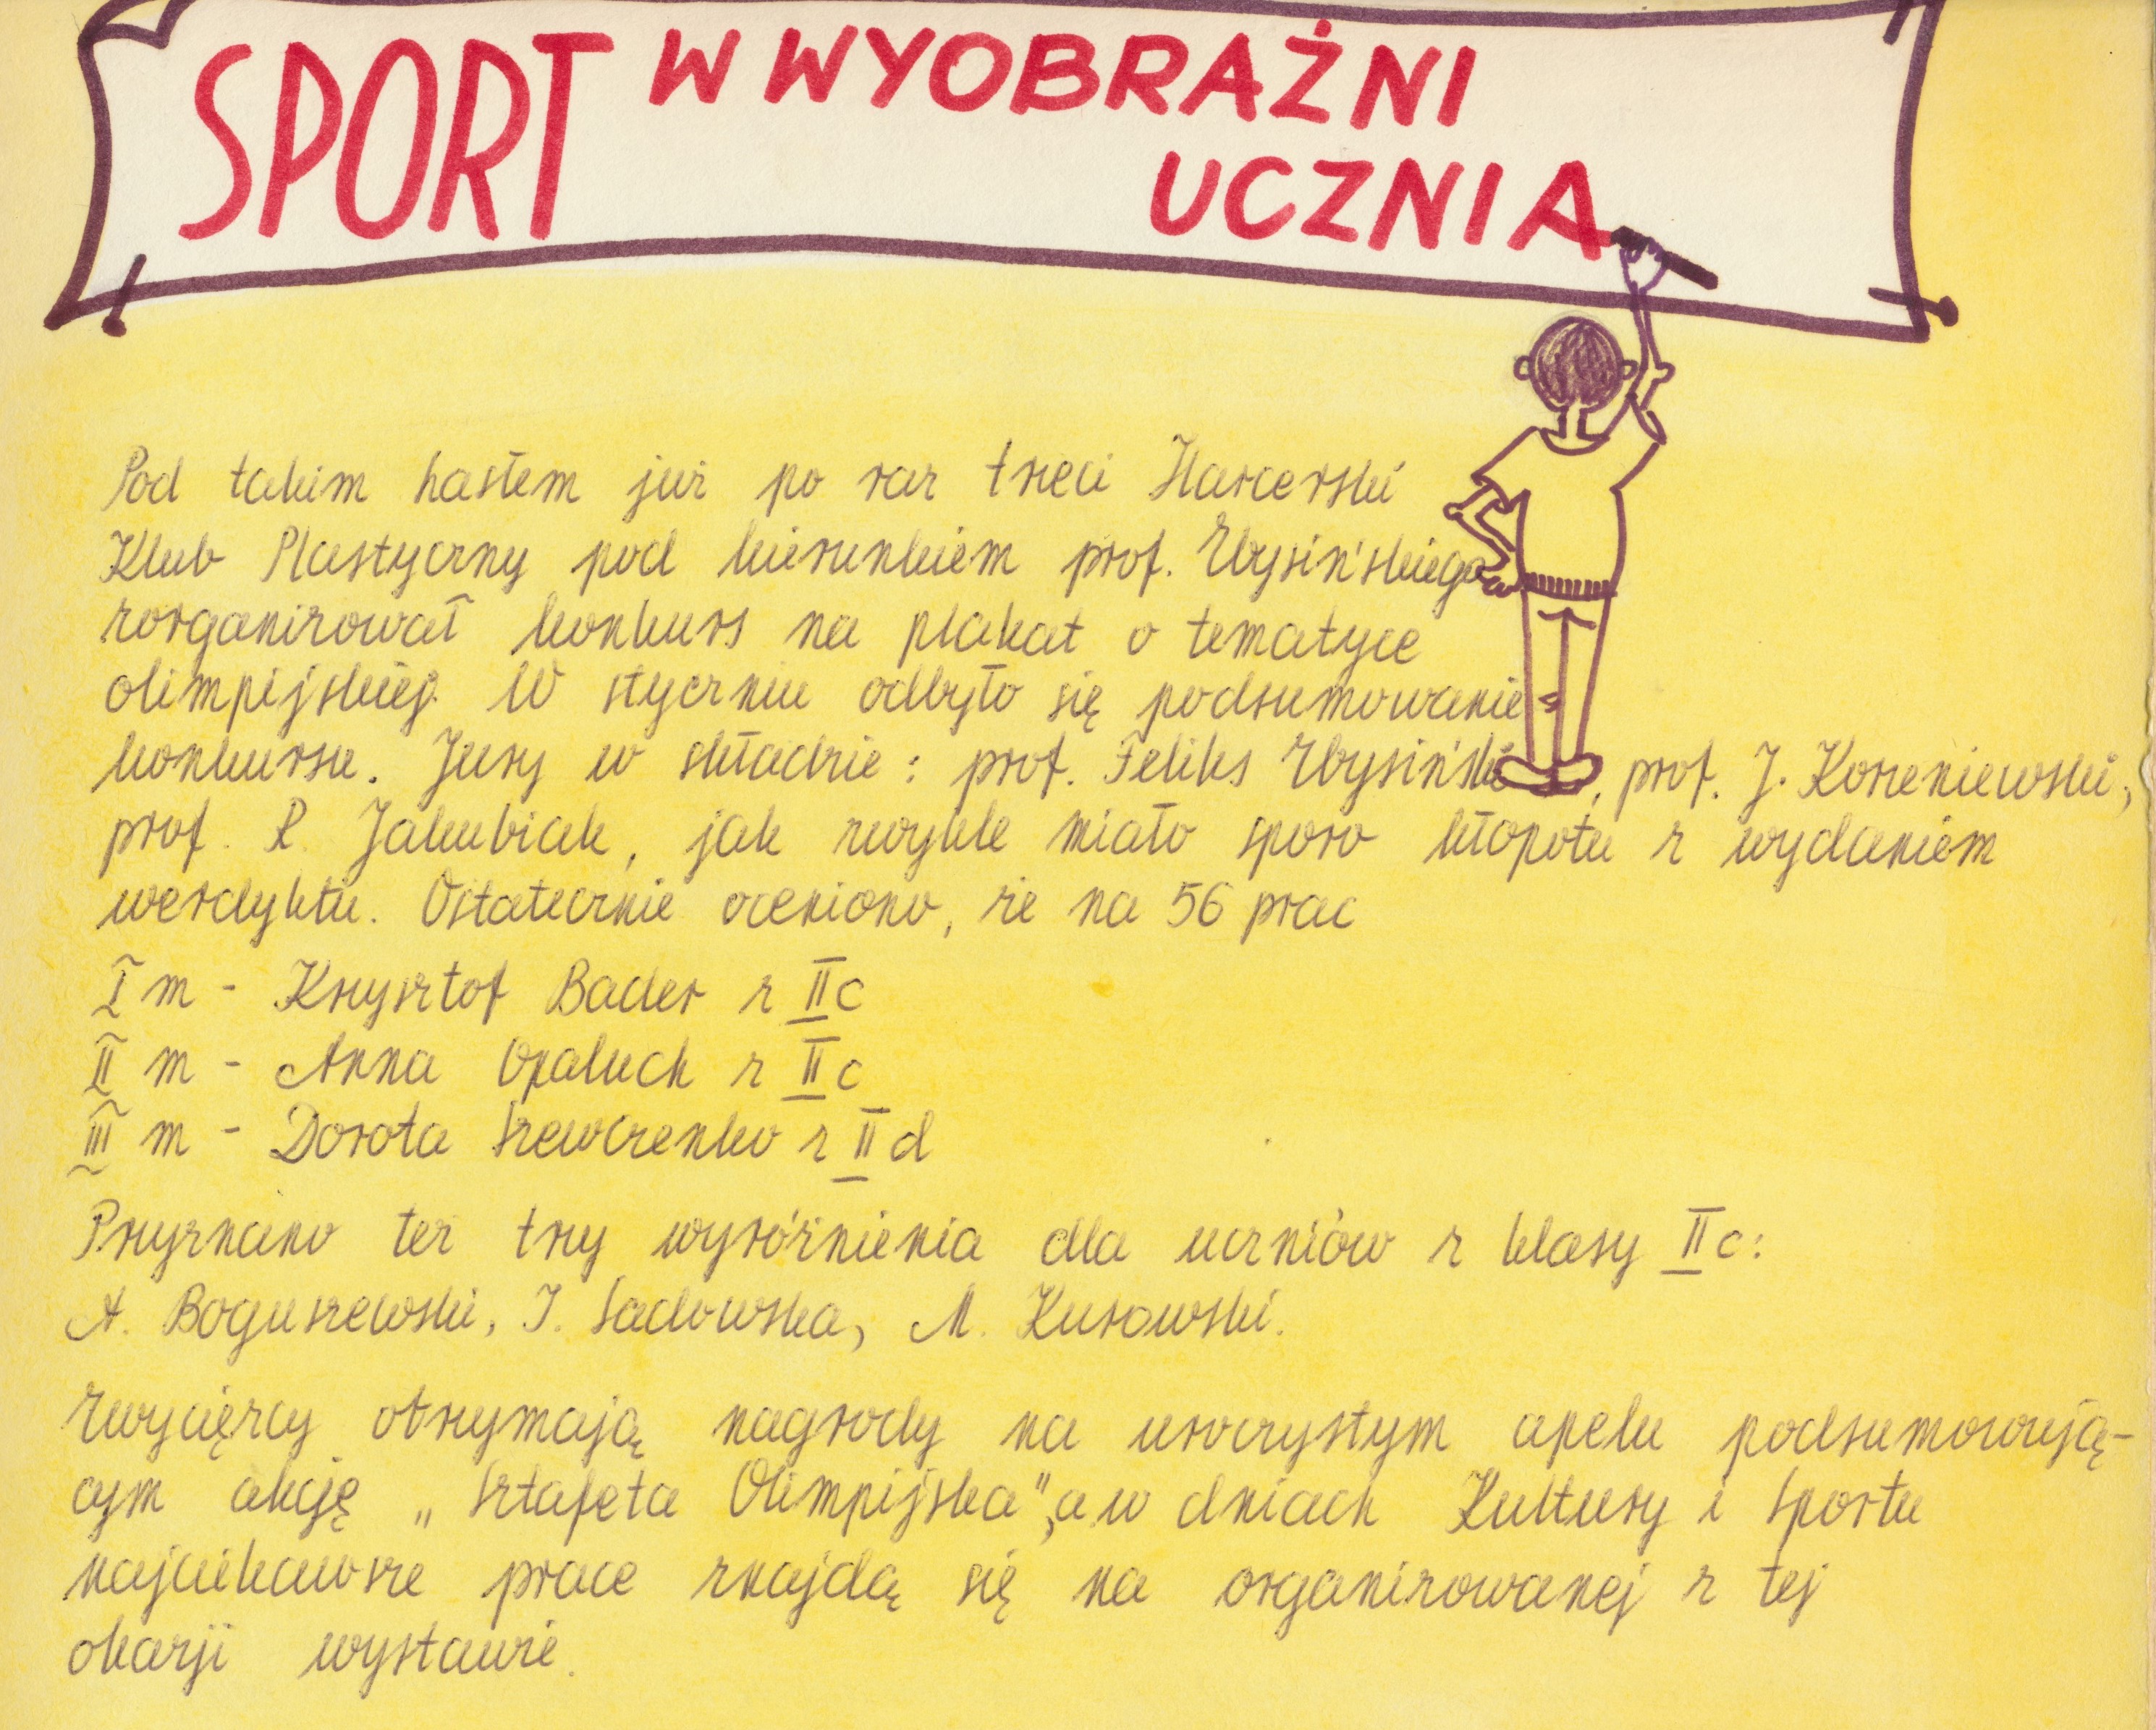 SPORT W WYOBRAŹNI
UCZNIA
Pod takim hasłem już po raz trzeci Harcerski
Klub Plastyczny pod kierunkiem prof. Zbysińskiego
zorganizował konkurs na plakat o tematyce
olimpijskiej. W styczniu odbyło się podsumowanie
konkursu. Jury w składzie: prof. Feliks Zbysiński, prof. J. Korzeniewski,
prof. R. Jakubiak, jak zwykle miało sporo kłopotu z wydaniem
werdyktu. Ostatecznie oceniono, że na 56 prac
I m - Krzysztof Bader z II c
II m - Anna Opaluch z II c
III m - Dorota Szewczenko z II d
Przyznano też trzy wyróżnienia dla uczniów z klasy II c:
A. Boguszewski, I. Sadowska, M. Kurowski.
Zwycięzcy otrzymają nagrody na uroczystym apelu podsumowują-
cym akcję „Sztafeta Olimpijska", a w dniach Kultury i Sportu
najciekawsze prace znajdą się na organizowanej z tej
okazji wystawie.